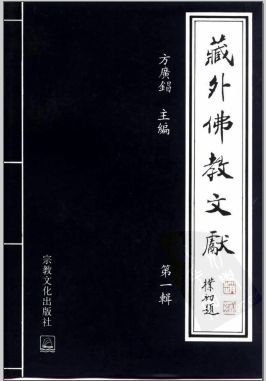 藏外佛教文獻
樸初題
方廣錩 主編
第一輯
宗教文化出版社